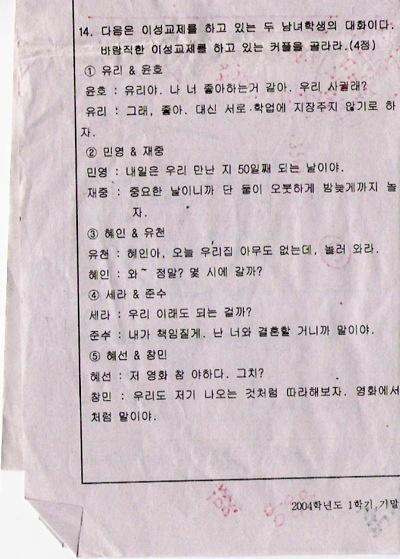 14. 다음은 이성교제를 하고 있는 두 남녀학생의 대화이다.
바람직한 이성교제를 하고 있는 커플을 골라라.(4점)
① 유리 & 윤호
윤호 : 유리야. 나 너 좋아하는거 같아. 우리 사귈래?
유리 : 그래, 좋아. 대신 서로 학업에 지장주지 않기로 하
자.
② 민영 & 재중
민영 : 내일은 우리 만난 지 50일째 되는 날이야.
재중 : 중요한 날이니까 단 둘이 오붓하게 밤늦게까지 놀
자.
③ 혜인 & 유천
유천 : 혜인아, 오늘 우리집 아무도 없는데, 놀러 와라.
혜인 : 와~ 정말? 몇 시에 갈까?
④ 세라 & 준수
세라 : 우리 이래도 되는 걸까?
준수 : 내가 책임질게. 난 너와 결혼할 거니까 말이야.
⑤ 혜선 & 창민
혜선 : 저 영화 참 야하다. 그치?
창민 : 우리도 저기 나오는 것처럼 따라해보자. 영화에서
처럼 말이야.
2004학년도 1학기 기말